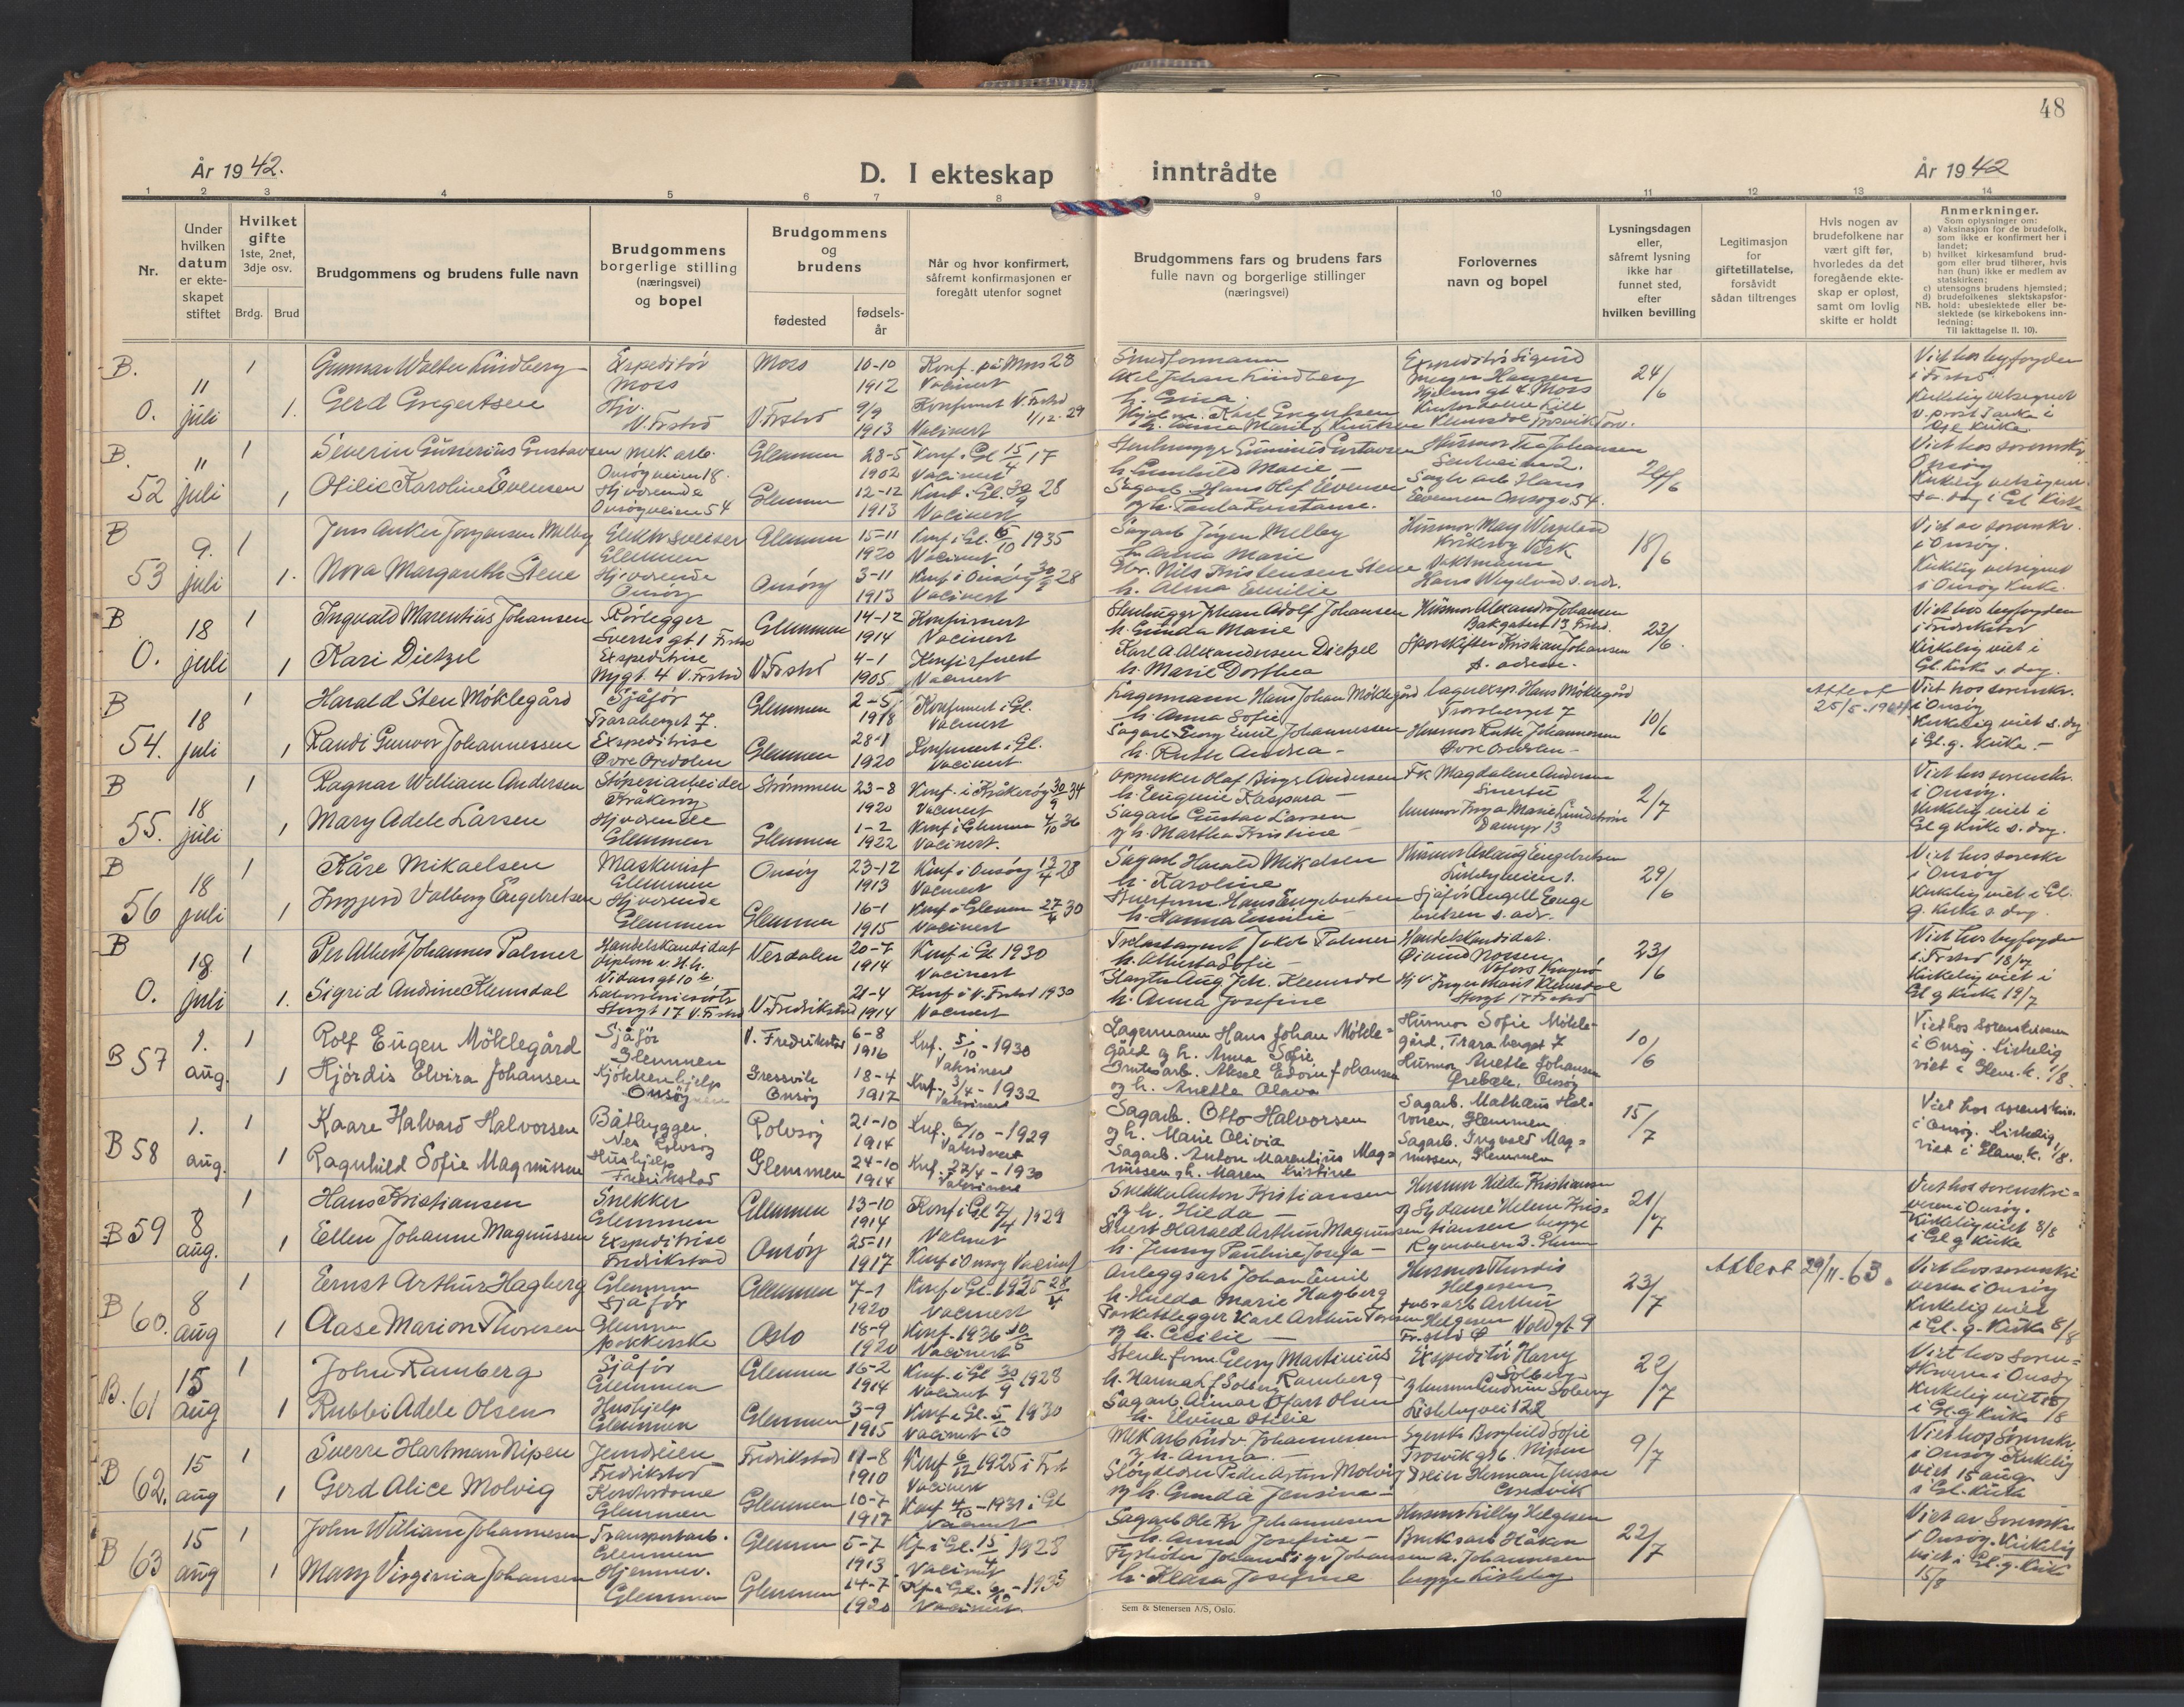 48
År 1942.
D. I ekteskap inntrådte
År 1942
1 2 3 4 5 6 7 8 9 10 11 12 13 14
Nr.
Under hvilken datum er ekteskapet stiftet
Hvilket gifte 1ste, 2net, 3dje osv.
Brdg. Brud
Brudgommens og brudens fulle navn
Brudgommens borgerlige stilling (næringsvei) og bopel
Brudgommens og brudens
fødested
fødselsår
Når og hvor konfirmert, såfremt konfirmasjonen er foregått utenfor sognet
Brudgommens fars og brudens fars fulle navn og borgerlige stillinger (næringsvei)
Forlovernes navn og bopel
Lysningsdagen eller, såfremt lysning ikke har funnet sted, efter hvilken bevilling
Legitimasjon for giftetillatelse, forsåvidt sådan tiltrenges
Hvis nogen av brudefolkene har vært gift før, hvorledes da det foregående ekteskap er opløst, samt om lovlig skifte er holdt
Anmerkninger.
Som oplysninger om:
a) Vaksinasjon for de brudefolk, som ikke er konfirmert her i landet;
b) hvilket kirkesamfund brudgom eller brud tilhører, hvis han (hun) ikke er medlem av statskirken;
c) utensogns brudens hjemsted;
d) brudefolkenes slektskapsforhold: ubeslektede eller beslektede (se kirkebokens innledning: NB. Til iakttagelse II. 10).
B. 0. 11 juli 1 Gunnar Walter Lindberg Expeditør Moss Moss 10-10 1912 Konf. på Moss 28 Vacinert
Smedformann Axel Johan Lindberg h. Gina Expeditør Sigurd Hansen 24/6
1. Gerd Gregertsen Hjv. V. Frstad V. Frstad 9/9 1913 Konfirmert V. Frstad 1/12 - 29 Vacinert
Viet hos byfogden i Frstad
B. 52 11 juli 1 Severin Gunerius Gustavsen Mek arb. Onsøyveien 18. Glemmen 28-5 1902 Konf. i Gl 15/4 17 Vacinert
h. Gunhild Marie - Husmor Tea Johansen
1 Otilie Karoline Evensen Hjværende Onsøyveien 54 Glemmen 12-12 1913 Konf. i Gl. 30/9 28 Vacinert
Sagarb. Hans Olaf Evensen og h. Paula Konstanse. Sagbr arb Hans Evensen Onsøyv 54.
Viet hos sorenskr. Onsøy
B 53 9. juli 1 Jens Anker Jørgensen Melby Glemmen Glemmen 15-11 1920 Konf. i Gl. 6/10 1935 Vacinert
Sagarb Jørgen Melby h. Anna Marie Husmor May Wegelund Kråkerøy Verk 18/6
1. Nora Margareth Stene Hjværende Onsøy Onsøy 3-11 1913 Konf i Onsøy 30/9 28 Vacinert
Nils Kristensen Stene h. Alma Emilie Vaktmann Hans Wegelund s. adr.
Viet av sorenskr. i Onsøy. Kirkelig velsignet i Onsøy Kirke.
B 0. 18 juli 1 Ingvald Marentius Johansen Rørlegger Sverres gt 1 Frstad Glemmen 14-12 1914 Konfirmert Vacinert
Stenhugger Johan Adolf Johansen h. Gunda Marie Husmor Alexandra Johansen Bakgaten 13 Frstad. 23/6.
1 Kari Dietzel Ekspeditrise Nygt. 4 V. Frstad V. Frstad 4-1 1905 Konfirmert Vacinert
Karl A Alexandersen Dietzel h. Marie Dorthea Kristian Johansen s. adresse.
Viet hos byfogden i Fredrikstad Kirkelig viet i Gl. kirke s. dag.
B 54. 18 juli 1 Harald Sten Møklegård Sjåfør Traraberget 7. Glemmen 2-5 1918 Konfirmert i Gl. Vacinert
Lagermann Hans Johan Møklegård h. Anna Sofie Lagereksp. Hans Møklegård Traraberget 7 10/6
1 Randi Gunvor Johannessen Ekspeditrise Glemmen 28-1 1920 Konfirmert i Gl. Vacinert.
Sagarb Georg Emil Johannessen h. Ruth Andrea - Husmor Ruth Johannessen
Attest 25/5-1964
Viet hos sorenskr. i Onsøy Kirkelig viet s. dag i Gl. g. kirke. -
B 55. 18 juli 1 Ragnar William Andersen Støperiarbeider Kråkerøy Strømmen 23-8 1920 Konf. i Kråkerøy 30/9 34 Vacinert
Oppusker Olaf Birger Andersen h. Eugenie Kaspara - Fk Magdalene Andersen 2/7
1 Mary Adele Larsen Hjværende Glemmen Glemmen 1-2 1922 Konf i Glemmen 4/10 36 Vacinert.
Sagarb Gustav Larsen og h. Martha Kristine - Husmor Inga Marie Lundstrøm Damyr 13
Viet hos sorenskr. i Onsøy. Kirkelig viet i Gl g kirke s. dag.
B 56 18 juli 1 Kåre Mikaelsen Maskinist Glemmen Onsøy 23-12 1913 Konf i Onsøy 13/4 28 Vacinert
Sagarb Harald Mikalsen h. Karoline Husmor Aslaug Engebretsen Lislebyveien 1. 29/6
1 Ingjerd Valborg Engebretsen Hjværende Glemmen Glemmen 16-1 1915 Konf i Glemmen 27/4 30 Vacinert
Hans Engebretsen h. Hanna Emilie Sjåfør Angell Engebretsen s. adr.
Viet hos sorenskr i Onsøy Kirkelig viet i Gl. g. kirke s. dag.
B 0. 18 juli 1 Per Albert Johannes Palmer Handelskandidat Vidars gt 10 b. Verdalen 20-7 1914 Konf i Gl 1930 Vacinert
Trelastagent Jakob Palmer h. Alberta Sofie - Handelskandidat. Øivind Nossen 23/6
1. Sigrid Andrine Klemsdal Storgt 17 V. Frstad V. Fredrikstad 21-4 1914 Konf i V. Frstad 1930 Vacinert
Aug. Joh. Klemsdal h. Anna Josefine Klemsdal Storgt 17 Frstad
Viet hos byfogden i Frstad 18/7 Kirkelig viet i Gl g kirke 19/7
B 57 1. aug. 1 Rolf Eugen Møklegård Sjåfør Glemmen V. Fredrikstad 6-8 1916 Knf. 5/10 - 1930 Vaksinert
Lagermann Hans Johan Møklegård og h. Anna Sofie Husmor Sofie Møklegård, Traraberget 7 10/6
1 Hjördis Elvira Johansen Kjøkkenhjelp Onsøy Gressvik Onsøy 18-4 1917 Knf. 3/4 - 1932 Vaksinert
Aksel Edvin Johansen og h. Anette Olava Husmor Anette Johansen Ørebekk, Onsøy
Viet hos sorenskriveren i Onsøy. kirkelig viet i Glem. k. 1/8.
B 58 1. aug. 1 Kaare Halvard Halvorsen Båtbygger Nes Rolvsøy Rolvsøy 21-10 1914 Knf. 6/10 - 1929 Vaksinert
Sagarb. Otto Halvorsen og h. Marie Olivia Sagarb. Mathæus Halvorsen, Glemmen 15/7
1 Ragnhild Sofie Magnussen Hushjelp Fredrikstad Glemmen 24-10 1914 Knf. 27/4 - 1930 Vaksinert
Sagarb. Anton Marentius Magnussen og h. Maren Kristine Sagarb. Ingvald Magnussen, Glemmen
Viet hos sorenskriv. i Onsøy. kirkelig viet i Glem. k. 1/8.
B 59 8 aug. 1 Hans Kristiansen Snekker Glemmen Glemmen 13-10 1914 Konf i Gl 7/4 1929 Vacinert
Snekker Anton Kristiansen og h. Hilda - Husmor Hilda Kristiansen 21/7
1 Ellen Johanne Magnussen Ekspeditrise Fredrikstad Onsøy 25-11 1917 Konf i Onsøy Vacinert
Harald Arthur Magnussen h. Jenny Pauline Josefa - og Sydame Helene Kristiansen begge
Viet hos sorenskriveren i Onsøy. Kirkelig viet 8/8 i Gl g kirke
B 60. 8 aug 1 Ernst Arthur Hagberg Glemmen Sjåfør Glemmen 7-1 1920 Konf i Gl. 1935 28/4 Vacinert
Anleggsarb Johan Emil h. Hulda Marie Hagberg Husmor Thordis Helgesen 23/7
1 Aase Marion Thoresen Glemmen Oslo 18-9 1920 Konf. 1936 Vacinert
Parkettlegger Karl Arthur Toresen og h. Cecilie - Arthur Helgesen Voldgt. 9 Fr.stad
Attest 29/11-63.
Viet hos sorenskriveren i Onsøy Kirkelig viet i Gl. g. Kirke 8/8
B. 61 15 aug 1 John Ramberg Sjåfør Glemmen Glemmen 16-2 1914 Konf. i Gl 30/9 1928 Vacinert
Martinius Ramberg - Expeditør Harry Solberg 22/7
1 Rubbi Adele Olsen Hushjelp Glemmen Glemmen 3-9 1915 Konf i Gl. 5/10 1930 Vacinert
Sagarb Olsen h. Elvine Otilie Solberg Lislebyvei 122
Viet hos sorenskriveren i Onsøy Kirkelig viet 15/8 i Gl. g Kirke
B 62. 15 aug 1 Sverre Hartman Nipen Fredrikstad Fredrikstad 11-8 1910 Konf 6/12 1925 i Frst Vacinert
Mek arb Ludv. Johannessen og h. Anna Borghild Sofie Nipen 9/7
1 Gerd Alice Molvig Kontordame Glemmen Glemmen 10-7 1917 Konf 4/10 - 1931 i Gl Vacinert
Peder Anton Molvig og h. Gunda Jensine - Herman Jensen
Viet hos Sorenskr. i Onsøy Kirkelig viet 15 aug. i Gl. kirke
B 63 15 aug 1 John William Johannesen Transportarb. Glemmen Glemmen 5-7 1913 Kf i Gl. 15/4 1928 Vacinert
Sagarb Ole Kr Johannessen h. Anna Josefine - Husmor Lilly Helgesen 22/7
1 Mary Virginia Johansen Hjemmev. Glemmen Glemmen 14-7 1920 Kf i Gl. 6/10 - 1935 Vacinert.
Fyrbøter Johan Johansen h. Klara Josefine Bruksarb Håkon A. Johannesen begge Lisleby
Viet av Sorenskr i Onsøy. Kirkelig viet i Gl. g. Kirke 15/8
Sem & Stenersen A/S, Oslo.